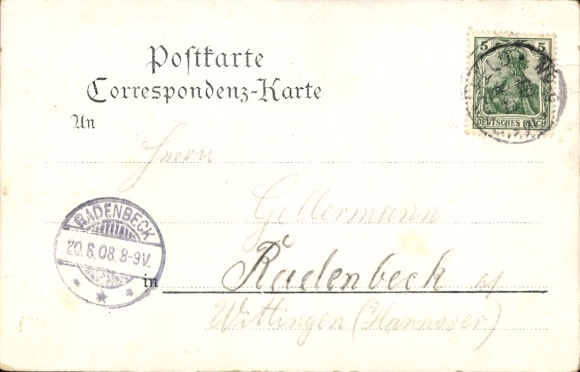 Postkarte
Correspondenz-Karte
An
5 5
DEUTSCHES REICH
Herrn
Gellermann
RADENBECK
20.6.08. 8-9V.
in Radenbeck
Wittingen (Hannover)